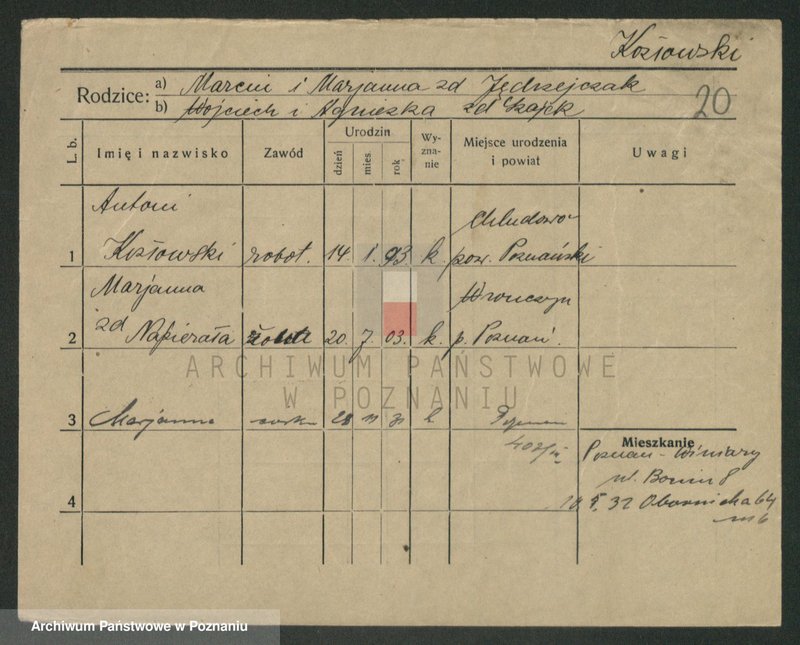 Kozłowski
Rodzice: a) Marcin i Marjanna zd Jędrzejczak
b) Wojciech i Agnieszka zd
20
L. b. Imię i nazwisko Zawód Urodzin dzień mies. rok Wy-zna-nie Miejsce urodzenia i powiat Uwagi
Antoni Chludowo
1 Kozłowski robot. 14. 1. 93. k. pow. Poznański
Marjanna Wronczyn
zd
2 Napierała żona 20. 7. 03. k. p. Poznań.
ARCHIWUM PAŃSTWOWE
W POZNANIU
3 Marjanna córka 28 11 31 k
Mieszkanie
Poznań - Winiary
ul. Bonin 8
4
5. 32 Obornicka 64
m 6
Archiwum Państwowe w Poznaniu